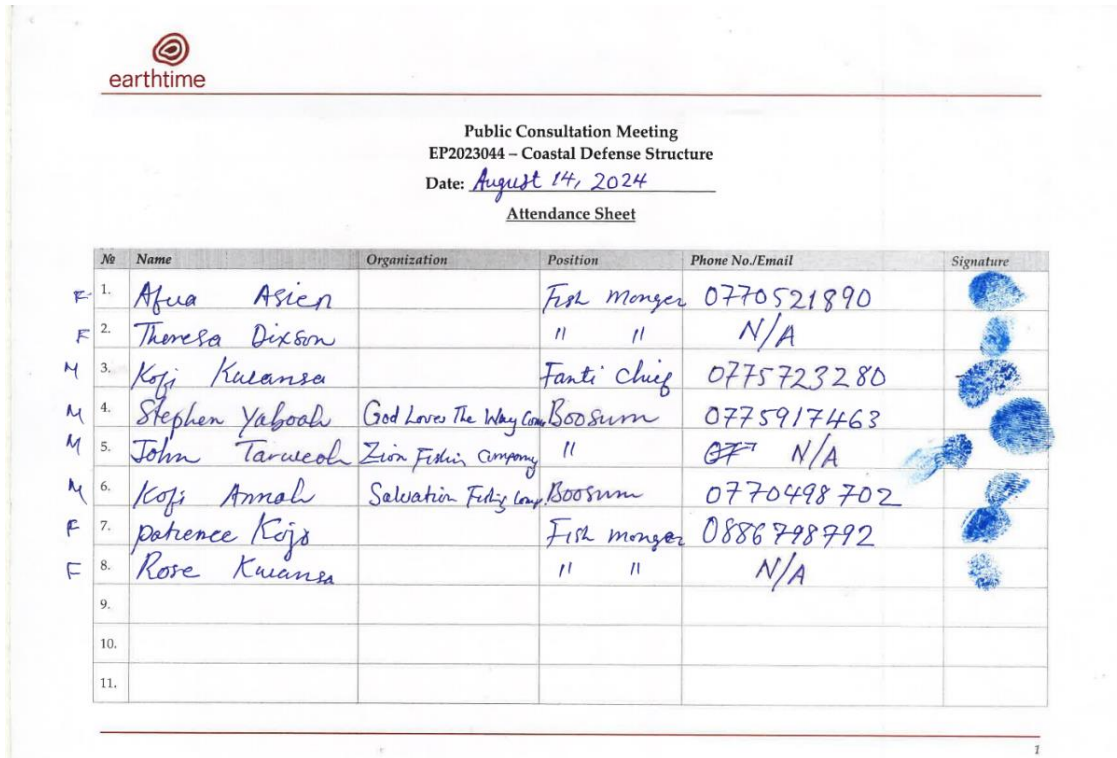 earthtime
Public Consultation Meeting
EP2023044 – Coastal Defense Structure
Date: August 14, 2024
Attendance Sheet
№ Name Organization Position Phone No./Email Signature
F 1. Afua Asien Fish monger 0770521890
F 2. Theresa Dixson " " N/A
M 3. Kofi Kwansa Fanti Chief 0775723280
M 4. Stephen Yaboah God Loves The Way Com Boosum 0775917463
M 5. John Tarweah Zion Fishin Company " N/A
M 6. Kofi Annah Salvation Fishing Comp. Boosum 0770498702
F 7. patience Kojo Fish monger 0886798792
F 8. Rose Kwansa " " N/A
9.
10.
11.
1